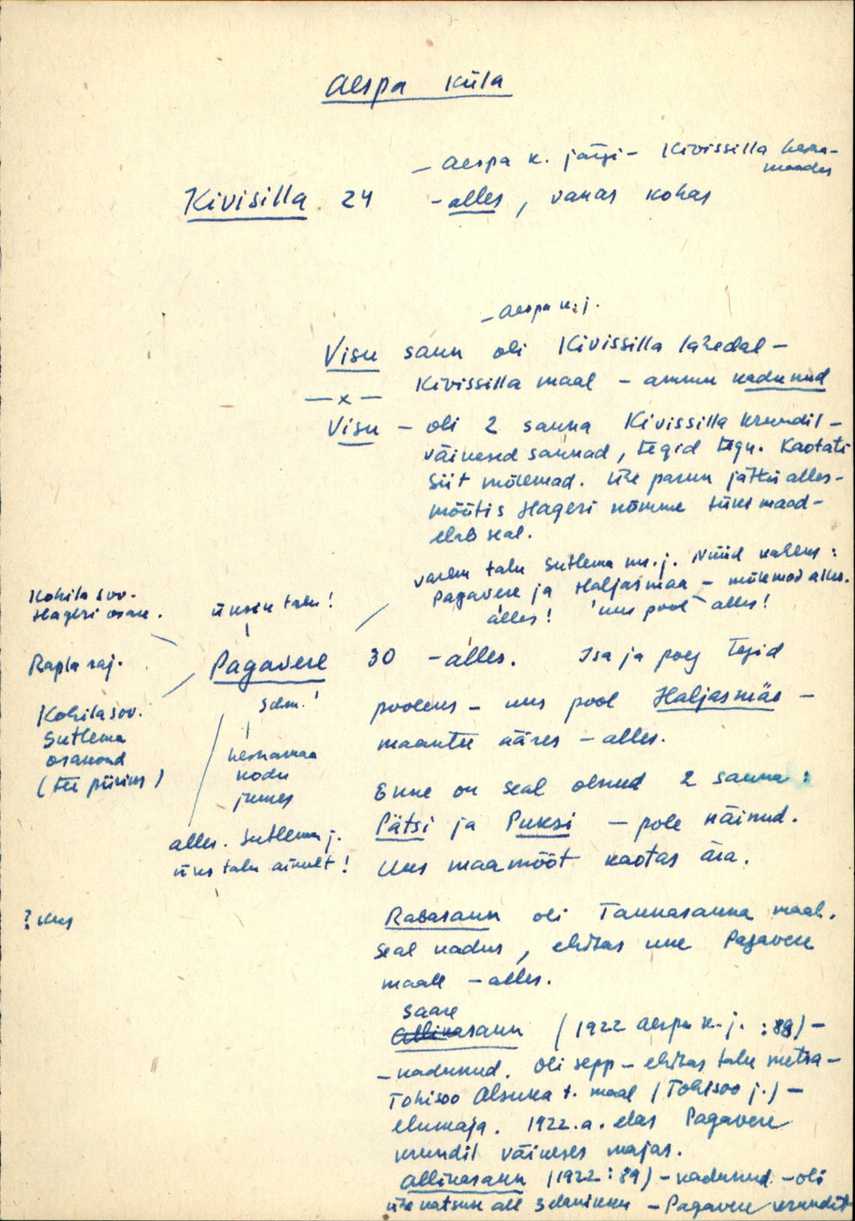 Aespa küla
- Aespa k. järgi - Kivissilla heina-
maadus
Kivisilla 24 - alles, vanas kohas
- Aespa k. j.
Visu saun oli Kivissilla lähedal -
Kivissilla maal - ammu kadunud
— x —
Visu - oli 2 sauna Kivissilla krundil -
väikesed saunad, tegid tegu. Kaotati
siit mõlemad. Ühe parun jättis alles -
mõõtis Hageri nõmme tüki maad -
elab seal.
varem talu Sutlema m. j. Nüüd kaheks:
Pagavere ja Haljasmaa - mõlemad alles.
alles! uus pool alles!
Kohila sov.
Hageri osak.
üksik talu!
Rapla raj.
Pagavere 30 - alles. Isa ja poeg tegid
pooleks - uus pool Haljasmäe -
maantee ääres - alles.
Kohila sov.
Sutlema
osakond
(tee piiriks)
Sdm.!
heinamaa
kodu
juures
alles. Sutlema j.
üks talu ainult!
Enne on seal olnud 2 sauna:
Pätsi ja Puksi - pole näinud.
Uus maamõõt kaotas ära.
? kus
Rabasaun oli Tannasauna maal.
Seal kadus, ehitas uue Pagavere
maale - alles.
Saare
Allikasaun (1922 Aespa k. j. : 89) -
- kadunud. Oli sepp - ehitas talu metsa -
Tohisoo Alsuka t. maal (Tohisoo j.) -
elumaja. 1922. a. elas Pagavere
krundil väikeses majas.
Allikasaun (1922 : 89) - kadunud - oli
ühe katuse all - Pagavere krundil